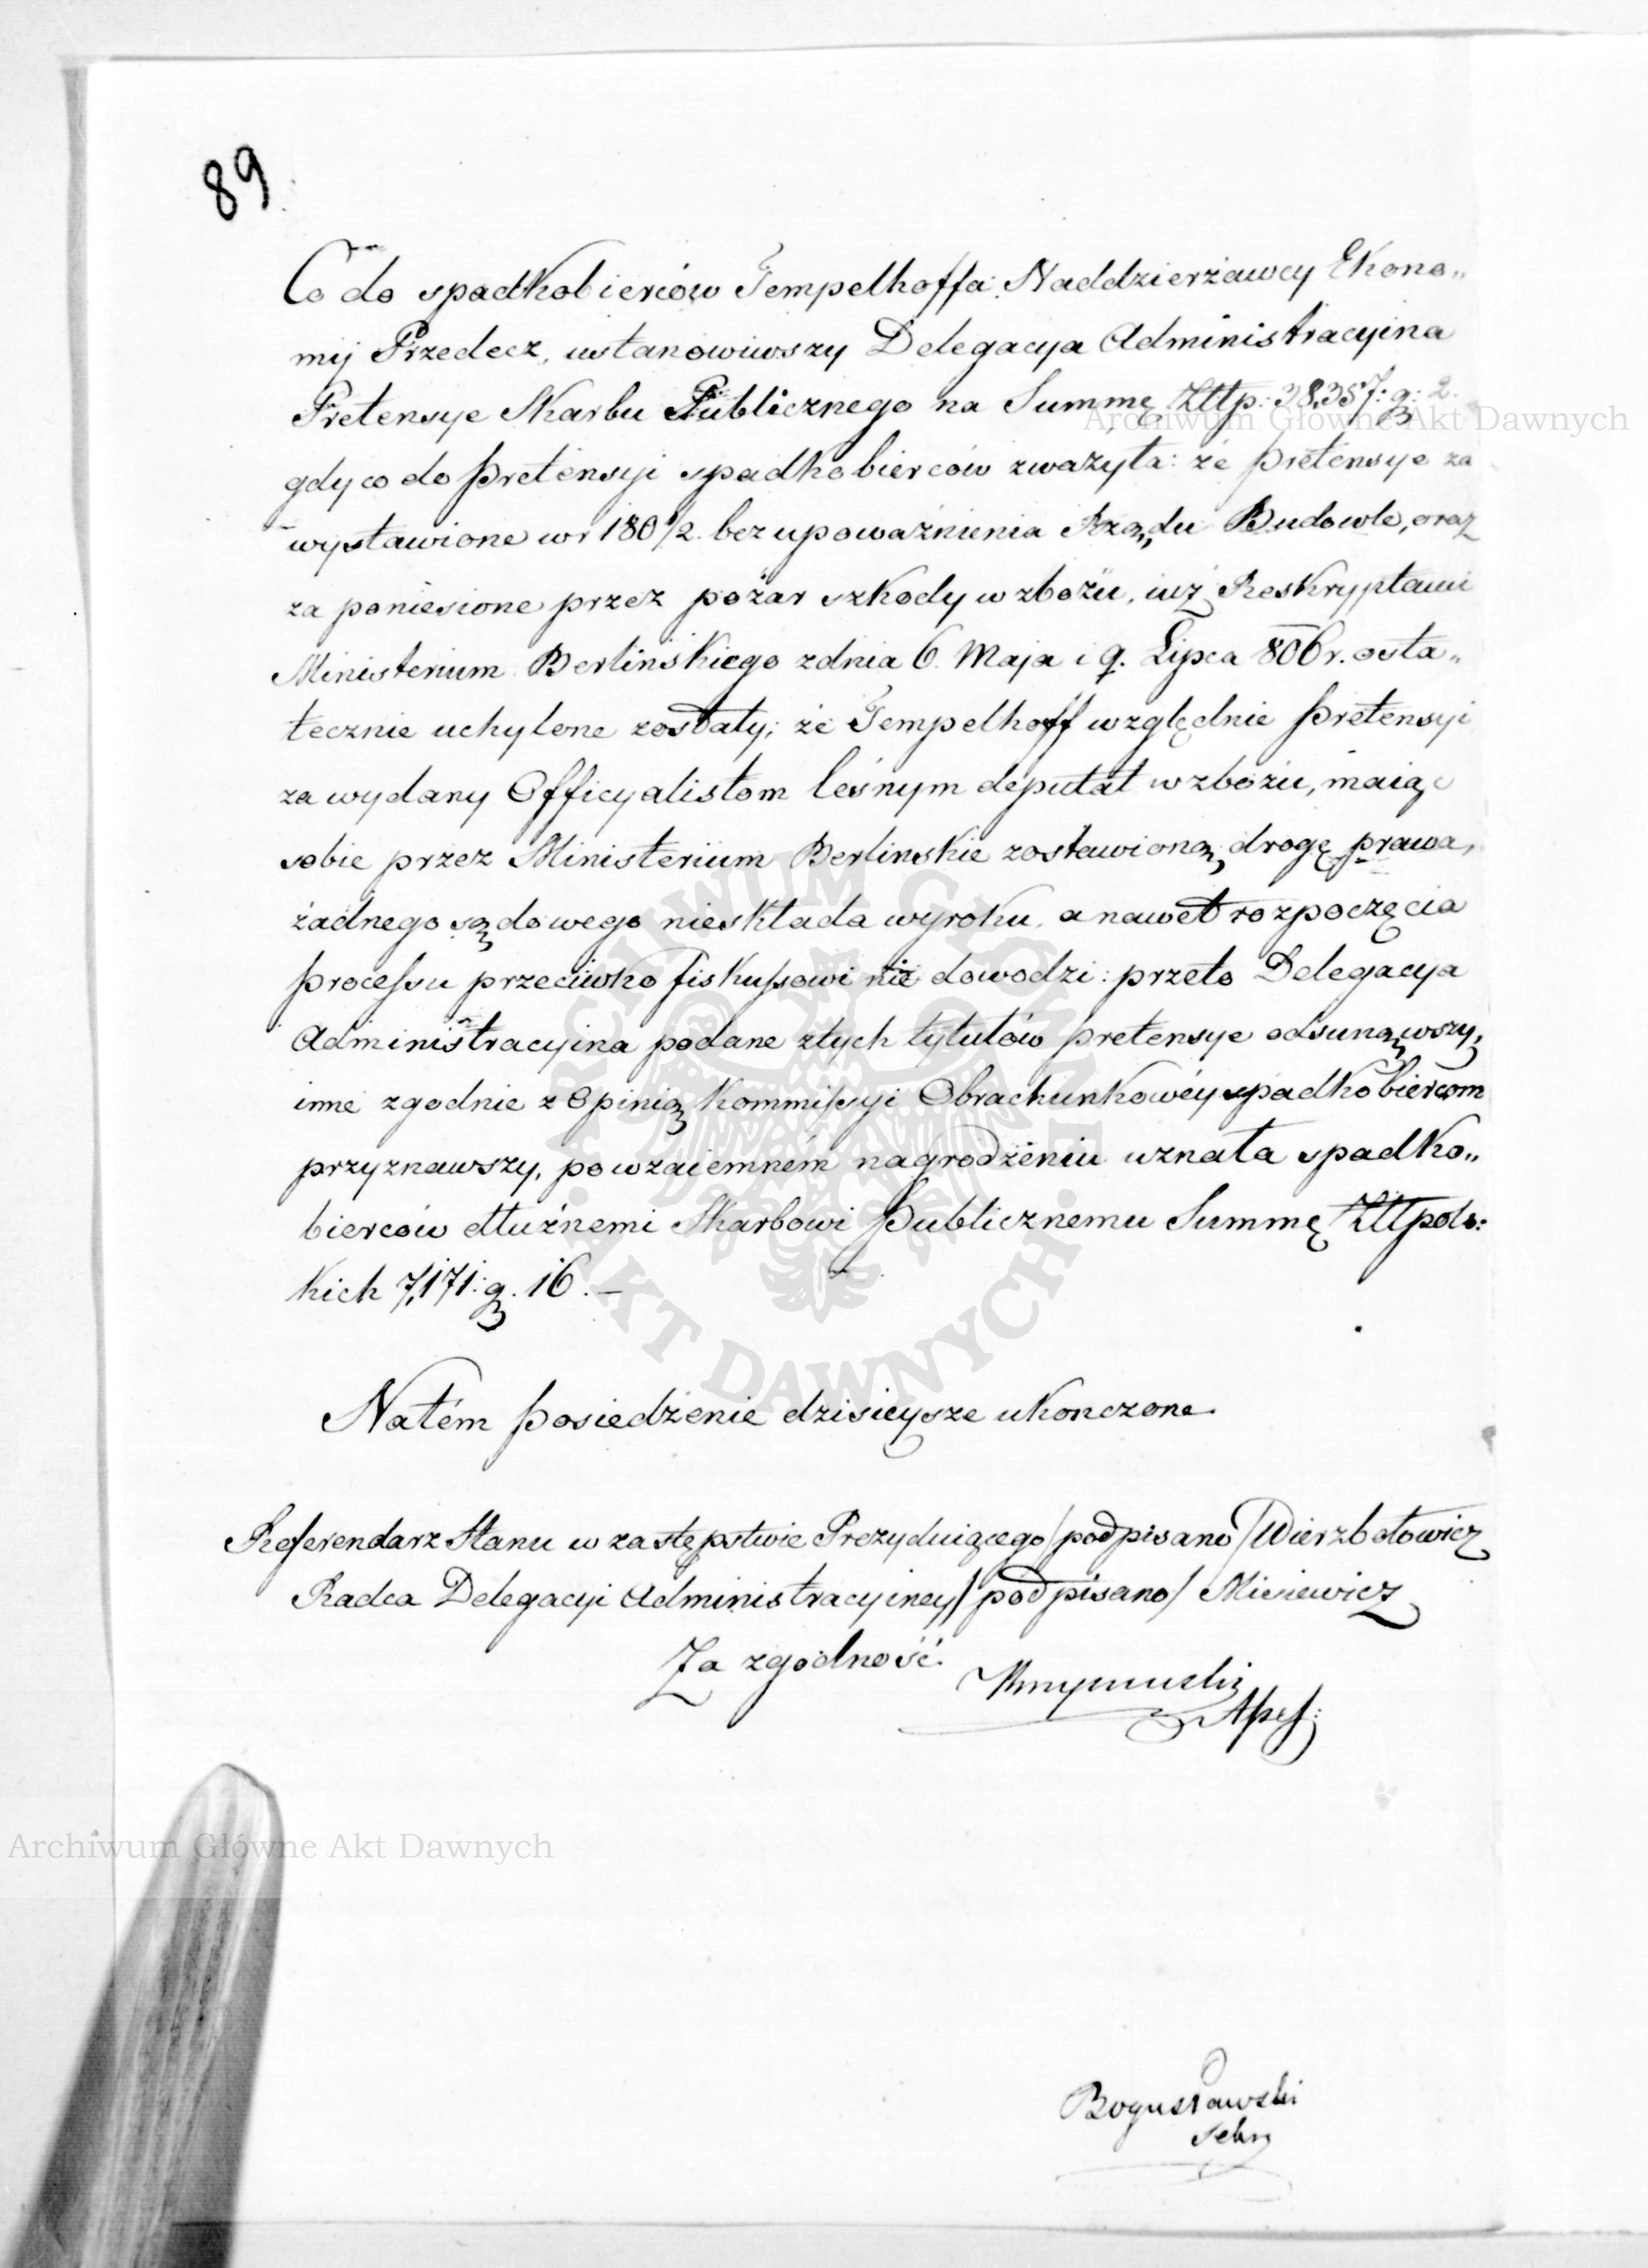 89
Co do spadkobierców Tempelhoffa Naddzierżawcy Ekono„
mij Przedecz, ustanowiwszy Delegacya Administracyina
Pretensye Skarbu Publicznego na Summę Złtp: 38,357: g: 2.
gdy co do pretensyi spadkobierców zważyła: że pretensye za
wystawione w r 180½. bez upoważnienia Rzą„du Budowle, oraz
za poniesione przez pożar szkody w zbożu, iuż Reskryptami
Ministerium Berlińskiego z dnia 6. Maja i 9. Lipca 806 r. osta„
tecznie uchylone zostały; że Tempelhoff względnie pretensyi
za wydany Officyalistom leśnym deputat w zbożu, maiąc
sobie przez Ministerium Berlinskie zostawioną drogę prawa,
żadnego sądowego nieskłada wyroku, a nawet rozpoczęcia
processu przeciwko fiskussowi nie dowodzi: przeto Delegacya
Administracyina podane z tych tytułów pretensye odsunąwszy,
inne zgodnie z Opinią Kommissyi Obrachunkowéy spadkobiercom
przyznawszy, po wzaiemném nagrodzeniu uznała spadko„
bierców dłużnemi Skarbowi Publicznemu Summę Złtpols:
kich 7,171: g. 16. —
Natém posiedzenie dzisieysze ukonczone.
Referendarz Stanu w zastępstwie Prezyduiącego /podpisano/ Wierzbołowicz
Radca Delegacyi Administracyiney /podpisano/ Misiewicz
Za zgodność.
Bogusławski
Sekr
Archiwum Główne Akt Dawnych
Archiwum Główne Akt Dawnych
ARCHIWUM GŁÓWNE AKT DAWNYCH